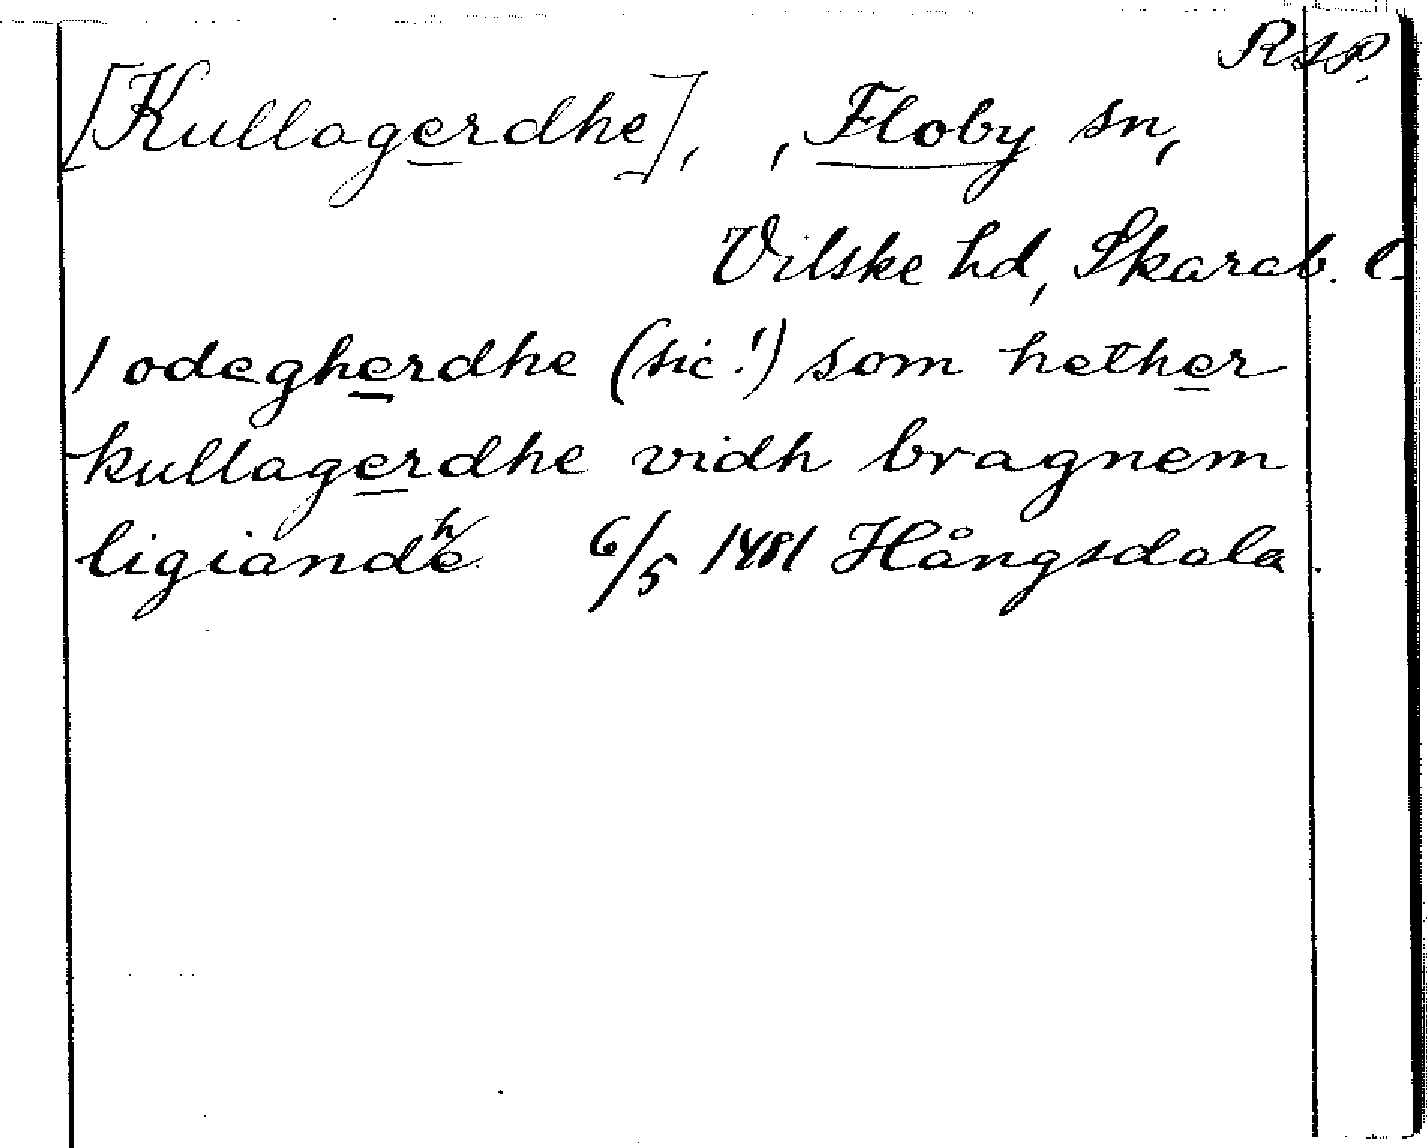 RAP.
[Kullagerdhe], , Floby sn,
Vilske hd, Skarab. l.
1 odegherdhe (sic!) som hether
kullagerdhe vidh bragnem
ligiandhe 6/5 1481 Hångsdala.